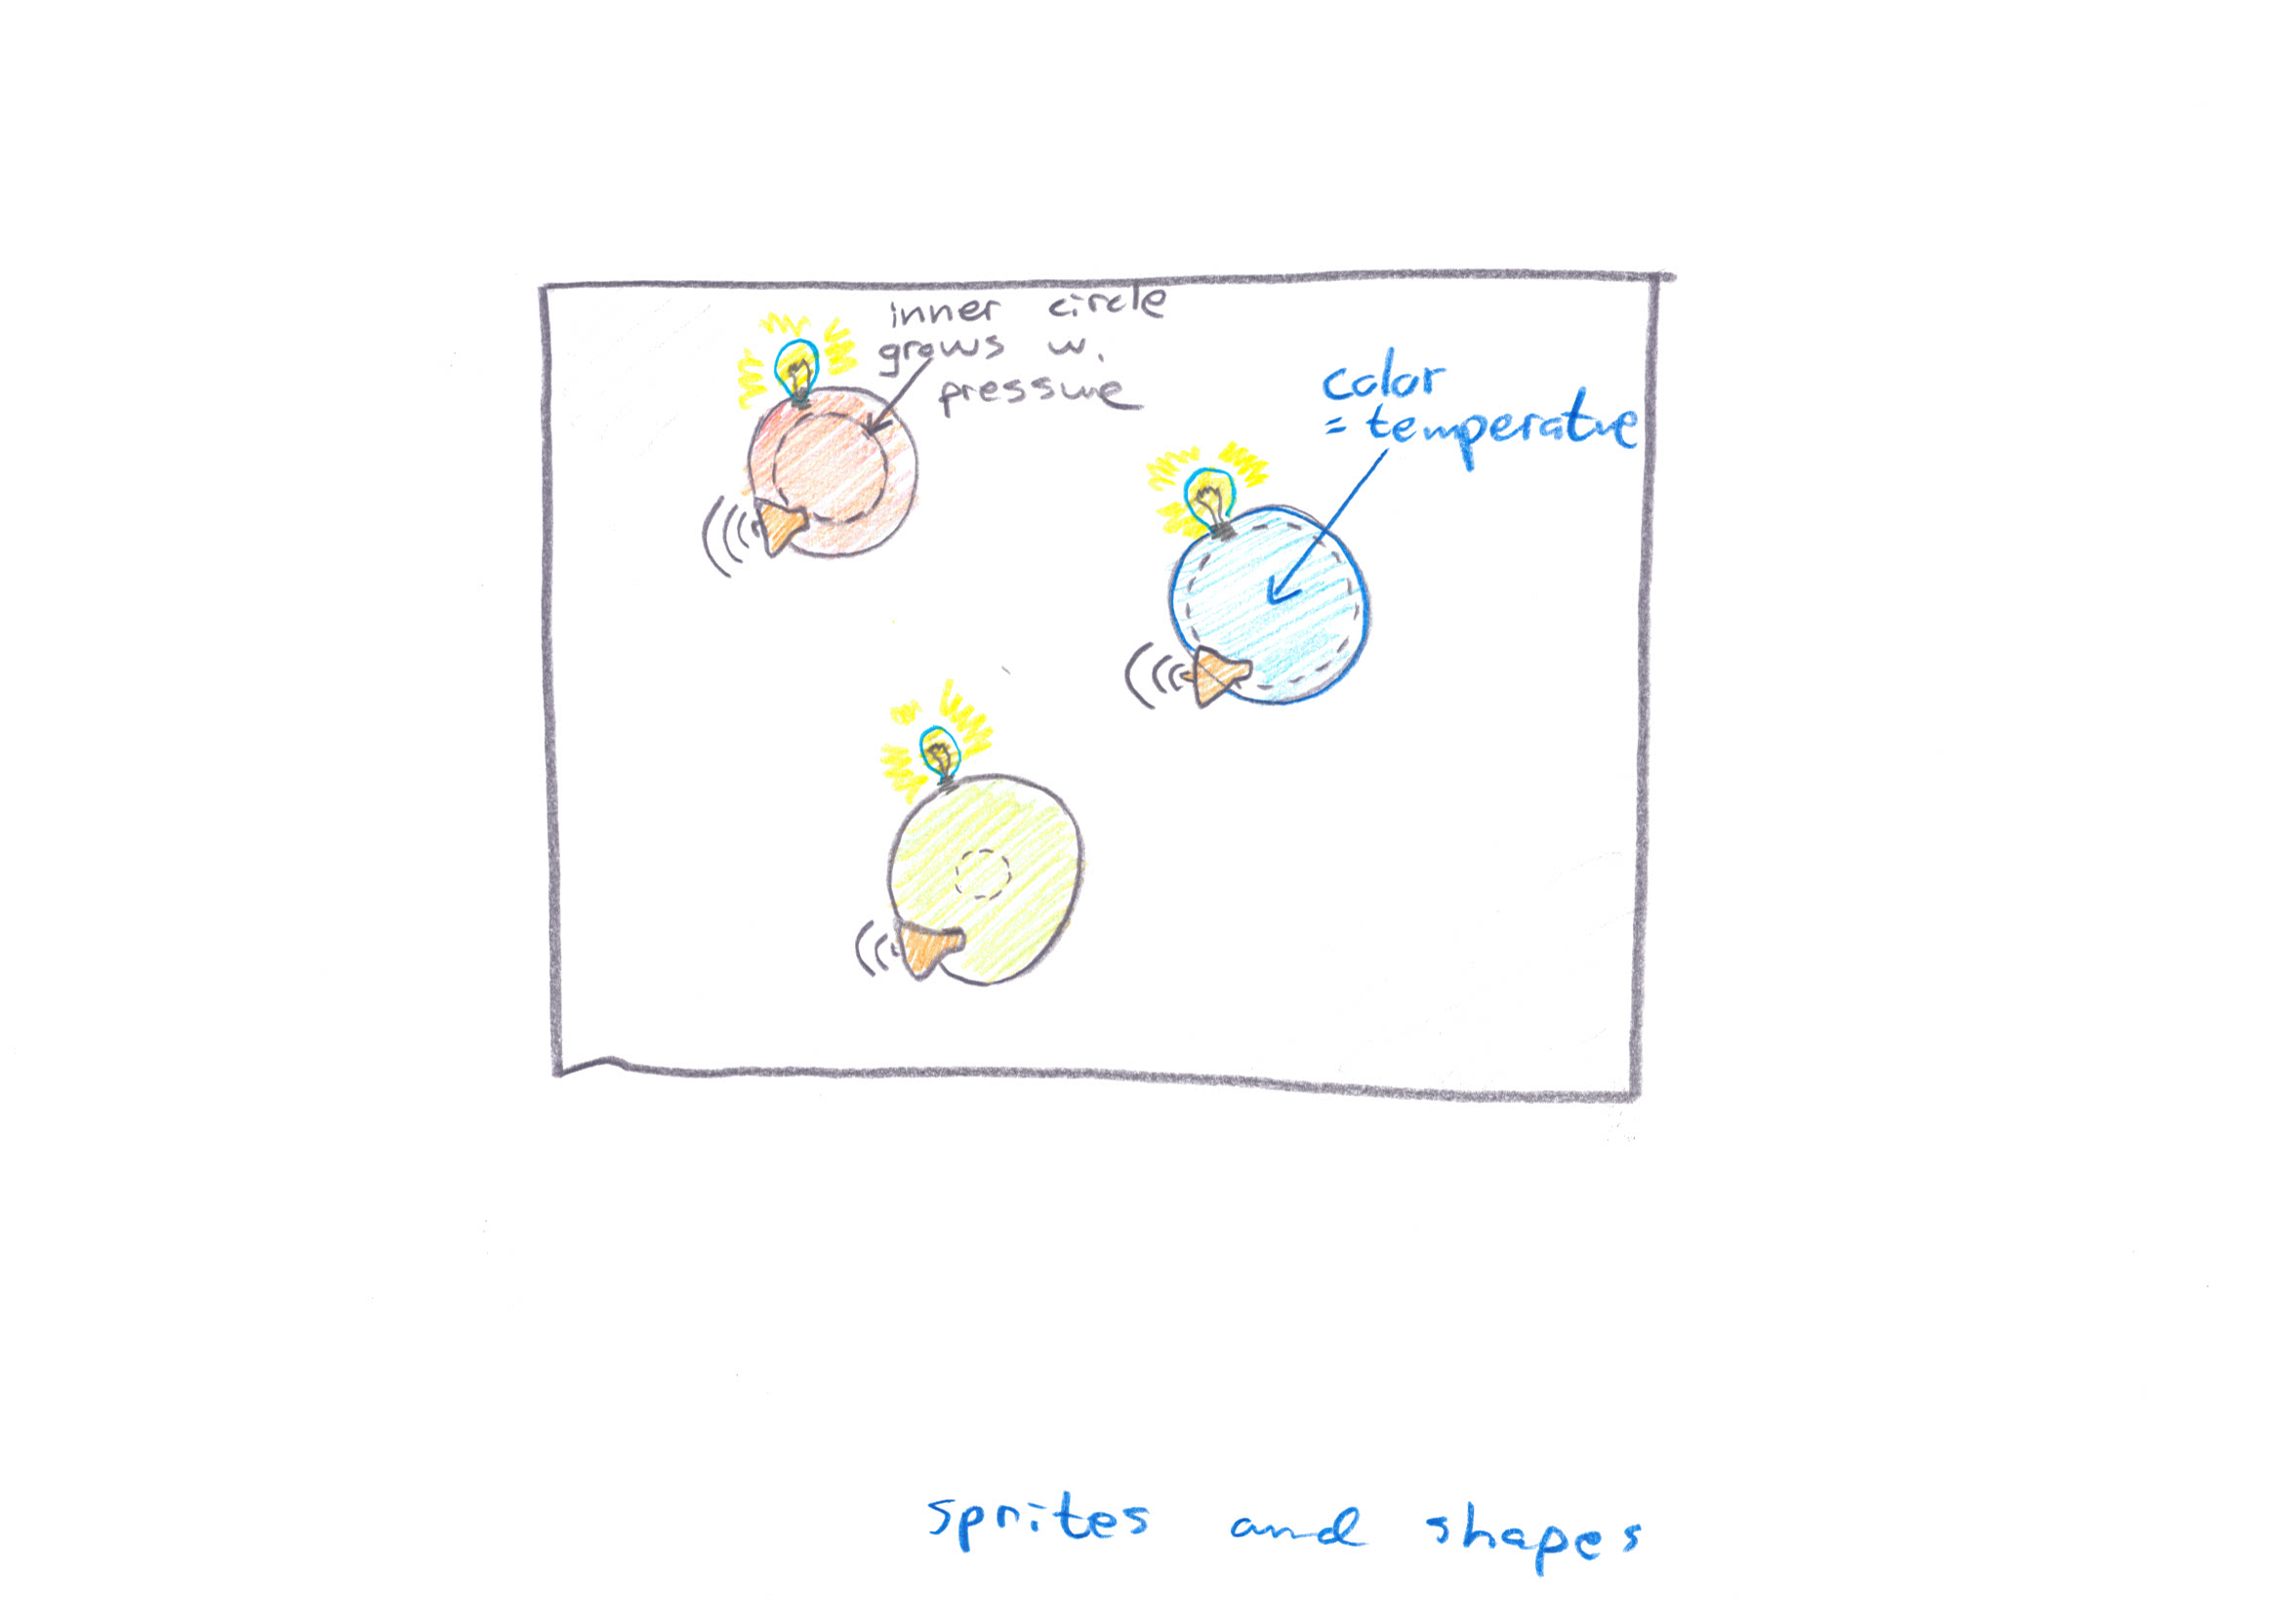 inner circle
grows w.
pressure
color
= temperature
sprites and shapes